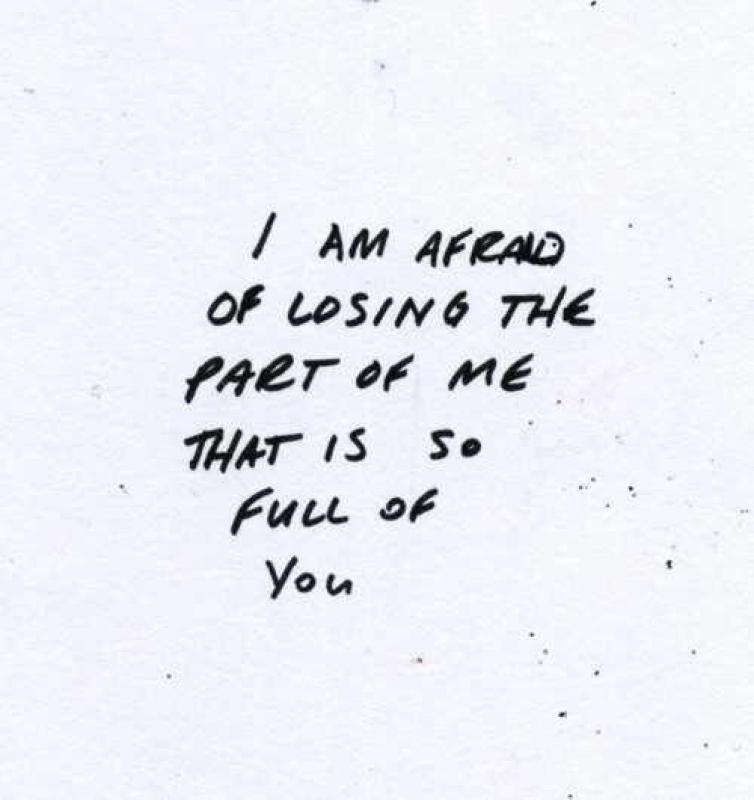 I AM AFRAID
OF LOSING THE
PART OF ME
THAT IS SO
FULL OF
You